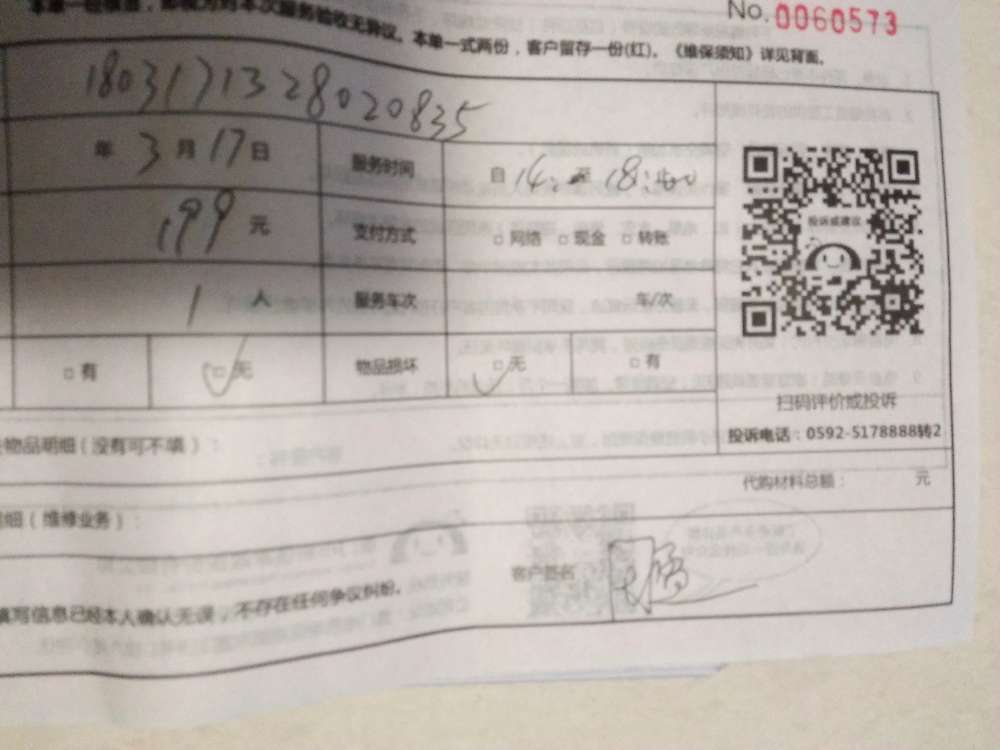 No. 0060573
对本次服务验收无异议。本单一式两份，客户留存一份(红)。《维保须知》详见背面。
1803171328020835
年 3 月 17 日 服务时间 自 14: 至 18:00
199 元 支付方式 □ 网络 □ 现金 □ 转账
1 人 服务车次 车/次
□ 有 □ 无 物品损坏 □ 无 □ 有
投诉或建议
扫码评价或投诉
投诉电话：0592-5178888转2
物品明细(没有可不填)：
代购材料总额： 元
细(维修业务)：
填写信息已经本人确认无误，不存在任何争议纠纷。
客户签名